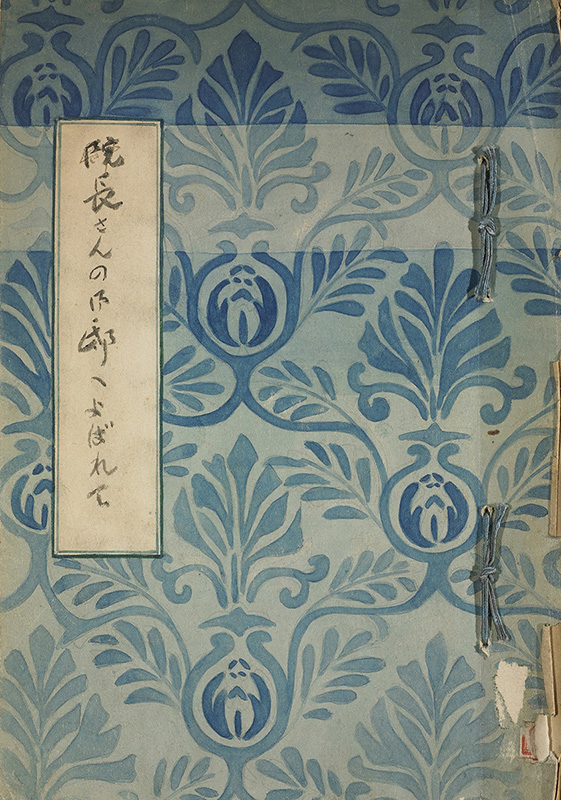 院長さんの御邸へよばれて